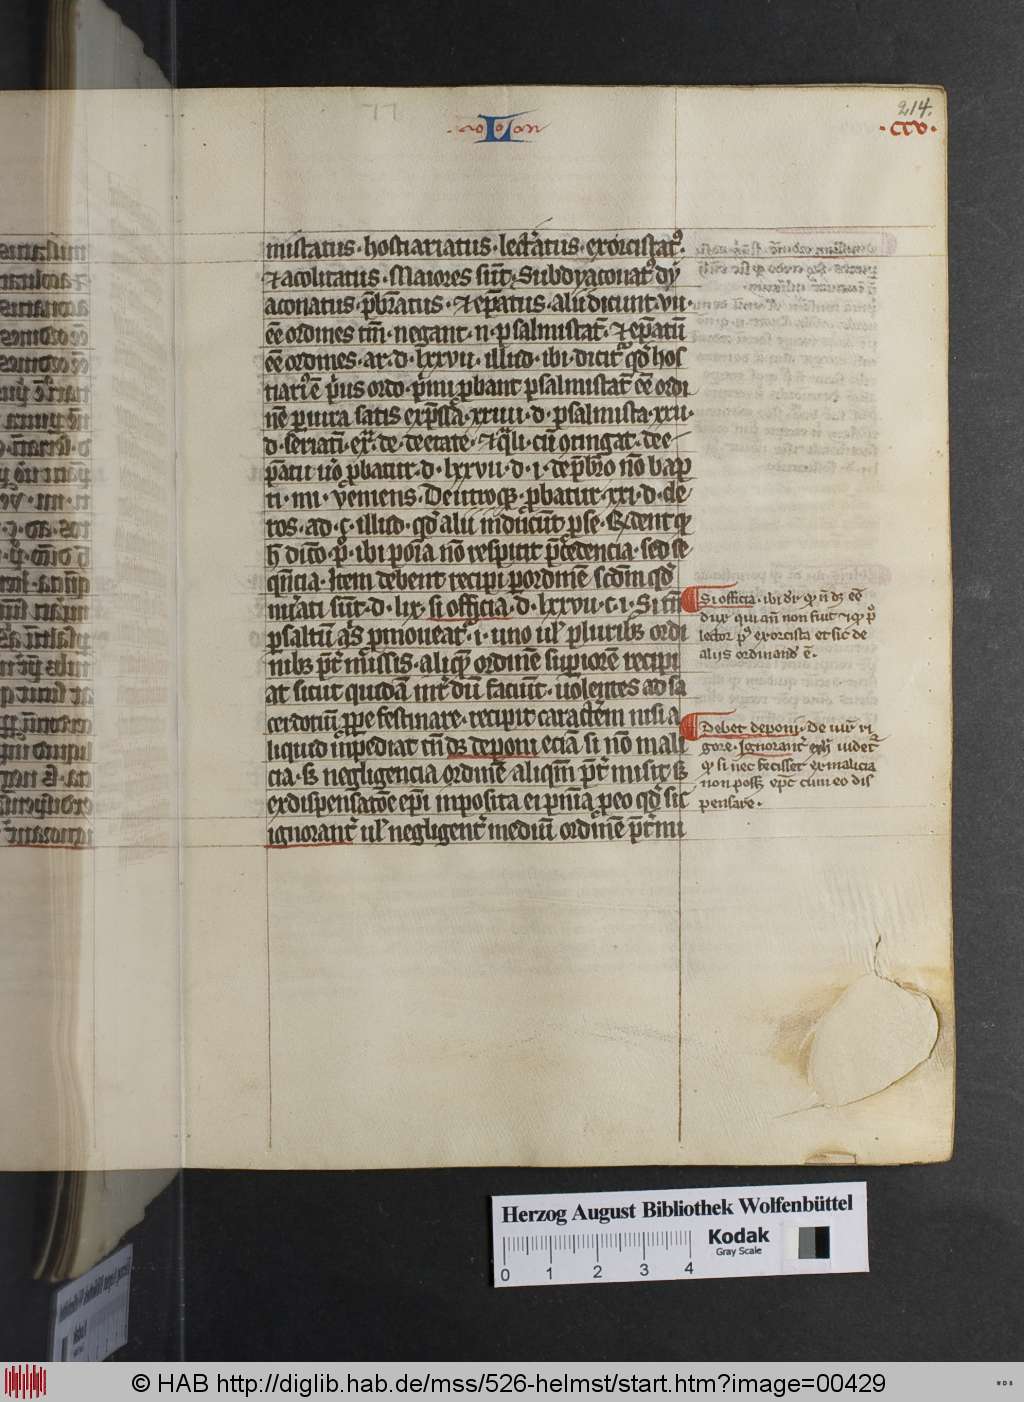 214.
·ccv·
L
mistatus · hostiariatus · lect̄atus · exorcistatꝰ ·
⁊ acolitatus · Maiores sūt · Subdyaconatꝰ dy
aconatus · p̄br̄atus · ⁊ ep̄atus · alij dicunt · vii ·
ēē ordines tm̄ · negant · n · psalmistat̄ · ⁊ ep̄atū
ēē ordines · ar · d · lxxvii · illud · ibi · dicit᷑ qd̄ hos
tiariꝰ ē p̄us ordo · p̄mi ꝓbant psalmistat̄ ēē ordi
nē p iura satis exp̄ssa · xxiii · d · psalmista · xxi ·
d · seriatī · ex̄ · de · de etate · ⁊ q̄li · cū otingat · de e
p̄atu uō ꝓbatur · d · lxxvii · d · i · de p̄bro nō bap
ti · ini · veniens · De utroqꝫ · ꝓbatur · xxi · d · cle
ros · ad · c · illud · qd̄ alii inducūt p se ·
h̄ dicto pꝰ · ibi poīa nō respicit p̄cedencia · sed se
qn̄cia · Item debent recipi p ordinē scd̄m qd̄
nūati sūt · d · lix · si officia · d · lxxvii · c · i · Si tn̄
p saltū aꝉs pmoueat᷑ · i · uno uꝉ pluribꝫ ordi
nibꝫ p̄t̄missis · aliqꝫ ordinē supiorē recipi
at sicut quidā int̄dū faciūt · uolentes ad sa
cerdotiū ꝓpe festinare · recipit caractēm nisi a
liquid inpediat tn̄ dꝫ deponi eciā si nō mali
cia · sꝫ negligencia ordinē aliqm̄ p̄t̄misit sꝫ
ex dispensatōe ep̄i inposita ei pn̄ia p eo qd̄ sic
ignorant̄ uꝉ negligent̄ mediū ordinē p̄t̄mi
Si officia · ibi dr̄ ꝙ n̄ dꝫ ēē
dux qui an̄ non fuit ⁊ ꝙ pꝰ
lector pꝰ exorcista et sic de
aliis ordinandꝰ ē ·
Debet deponi · De iur̄ ri
gore · Ignorant᷑ exn̄ uidet᷑
ꝙ si nec fecisset ex malicia
non possꝫ ep̄c cum eo dis
pensare ·
Herzog August Bibliothek Wolfenbüttel
Kodak
Gray Scale
0 1 2 3 4
© HAB http://diglib.hab.de/mss/526-helmst/start.htm?image=00429